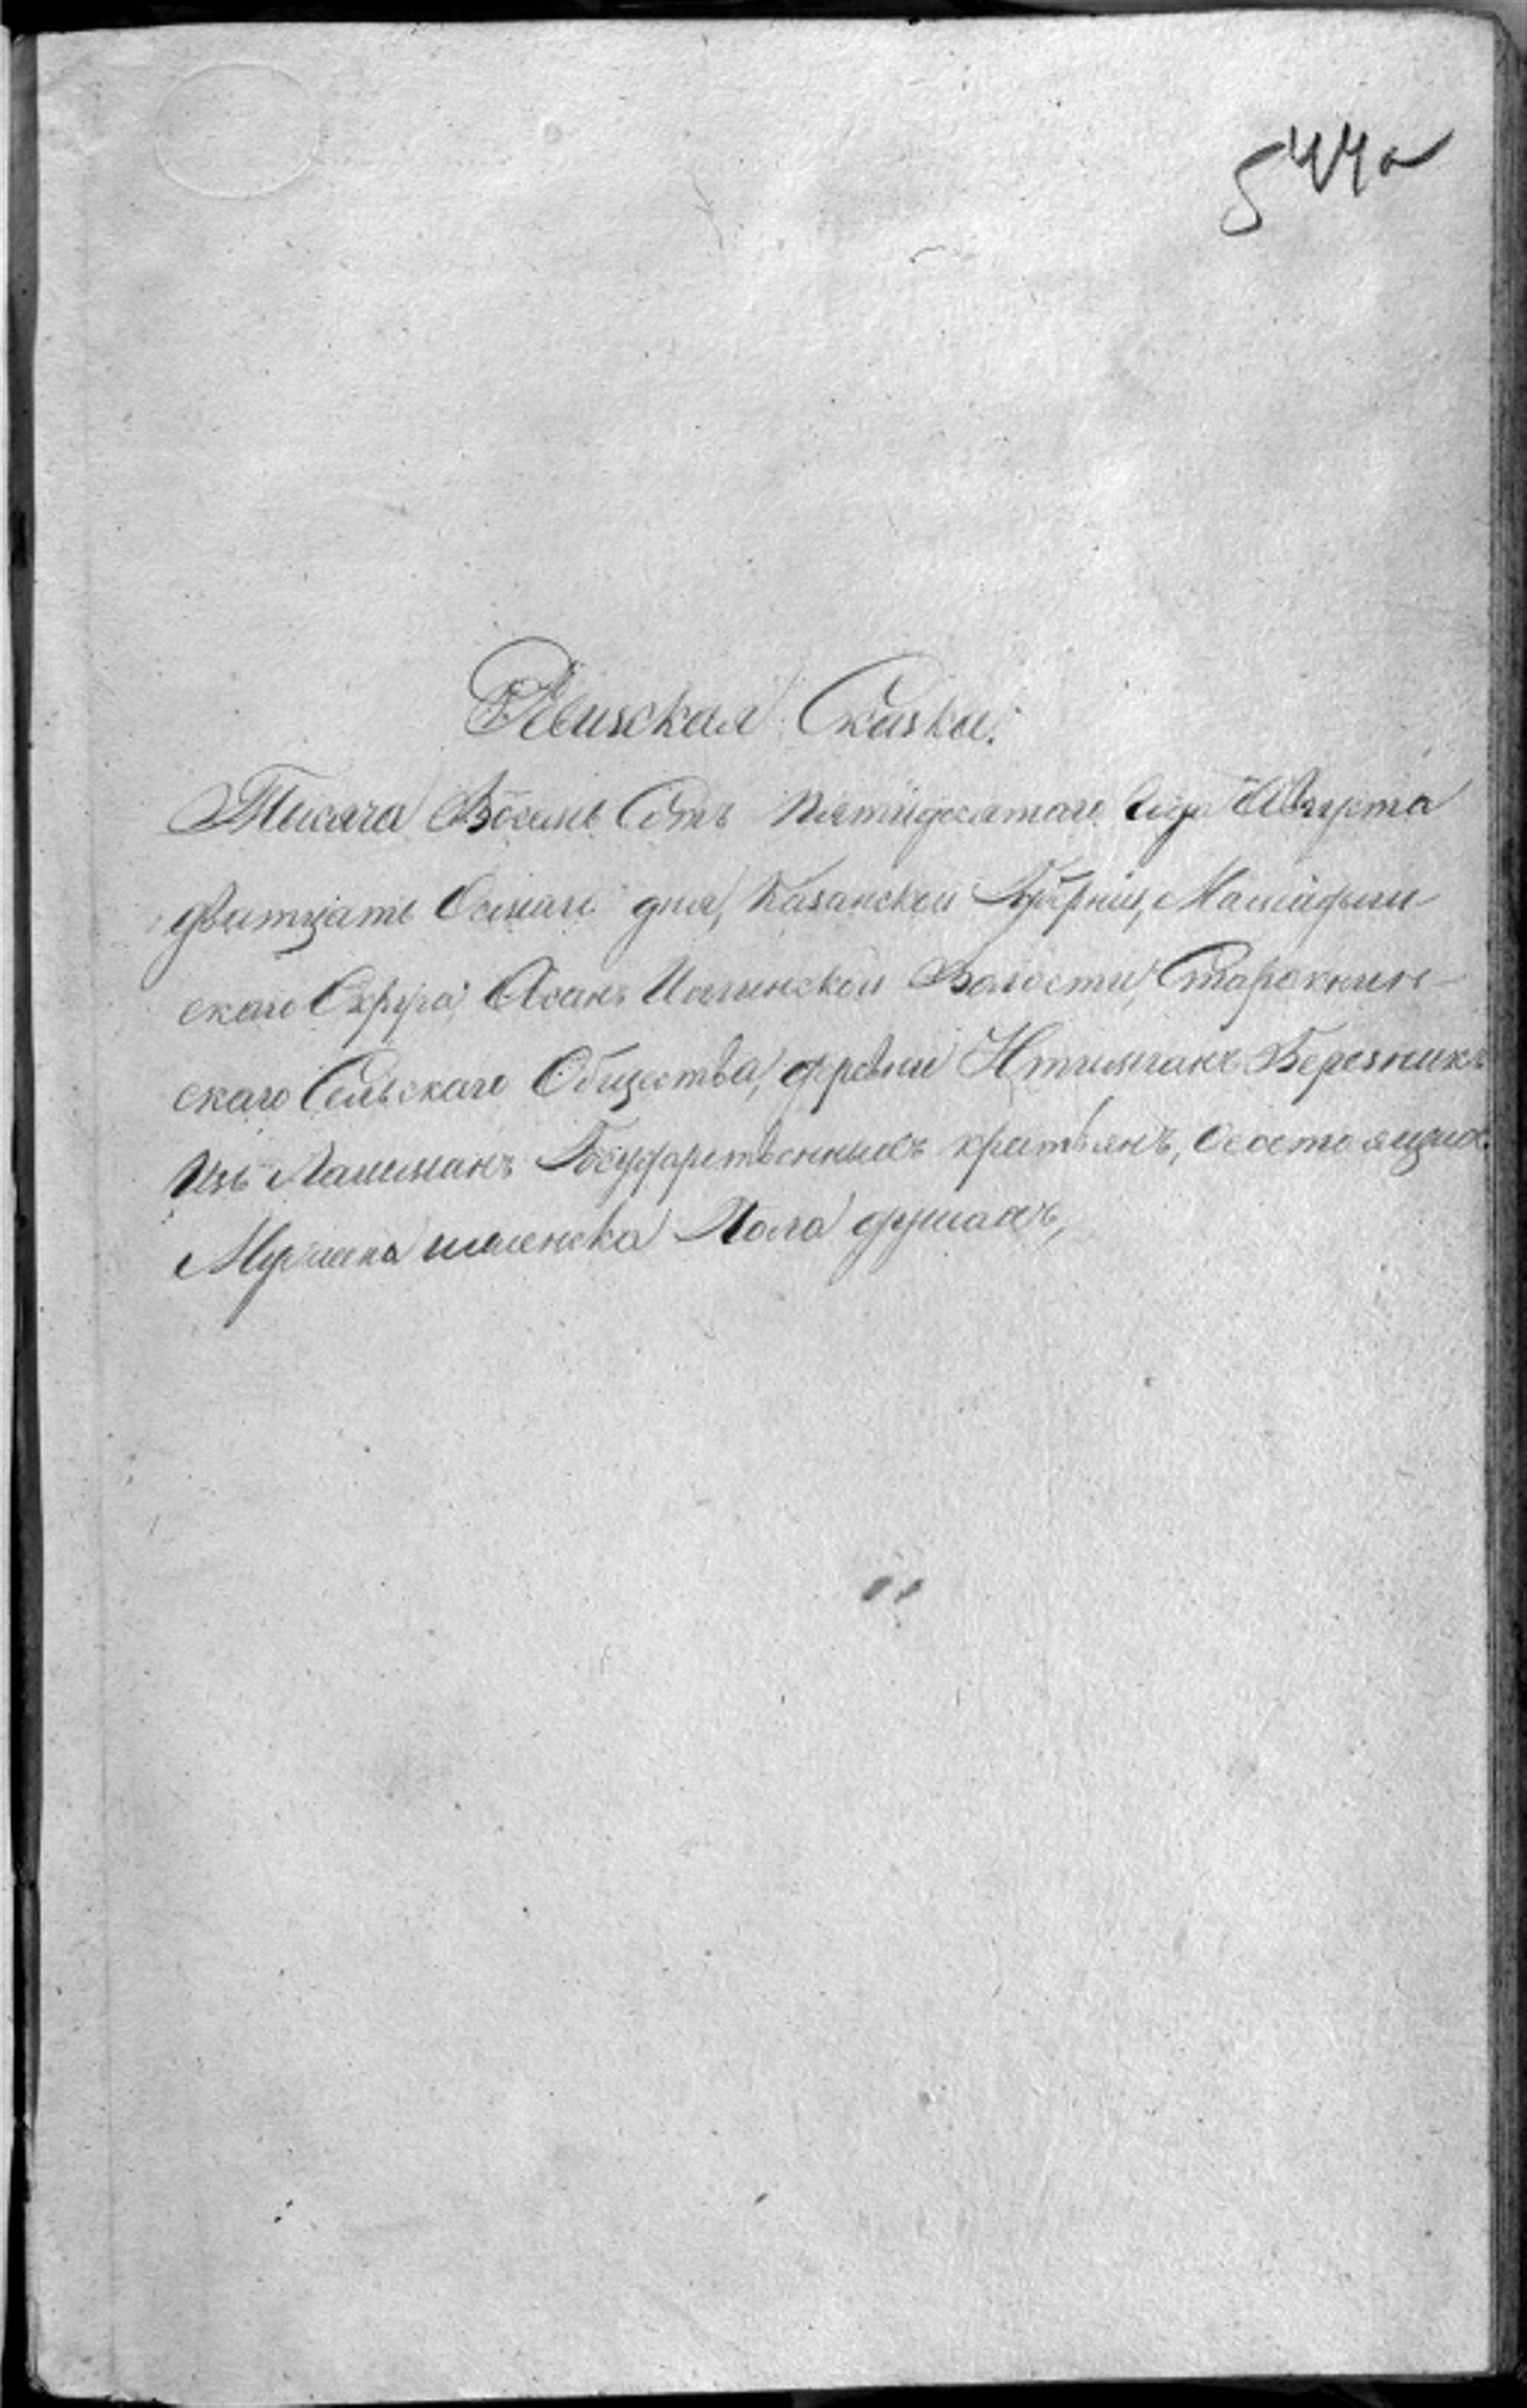 544а
Ревизская Сказка.
Тысяча Восемь Сотъ Пятидесятаго Года Августа
дватцать Осмаго дня, Казанской Губрніи, Мамадыш
скаго Округа, Асанъ Илгинской Волости, Старокнин-
скаго Сельскаго Общества, деревни Ятмасганъ Березникъ
Изъ Лашманъ Государственныхъ крестьянъ, Осостоящихъ
Мужеска иженска Пола душахъ,